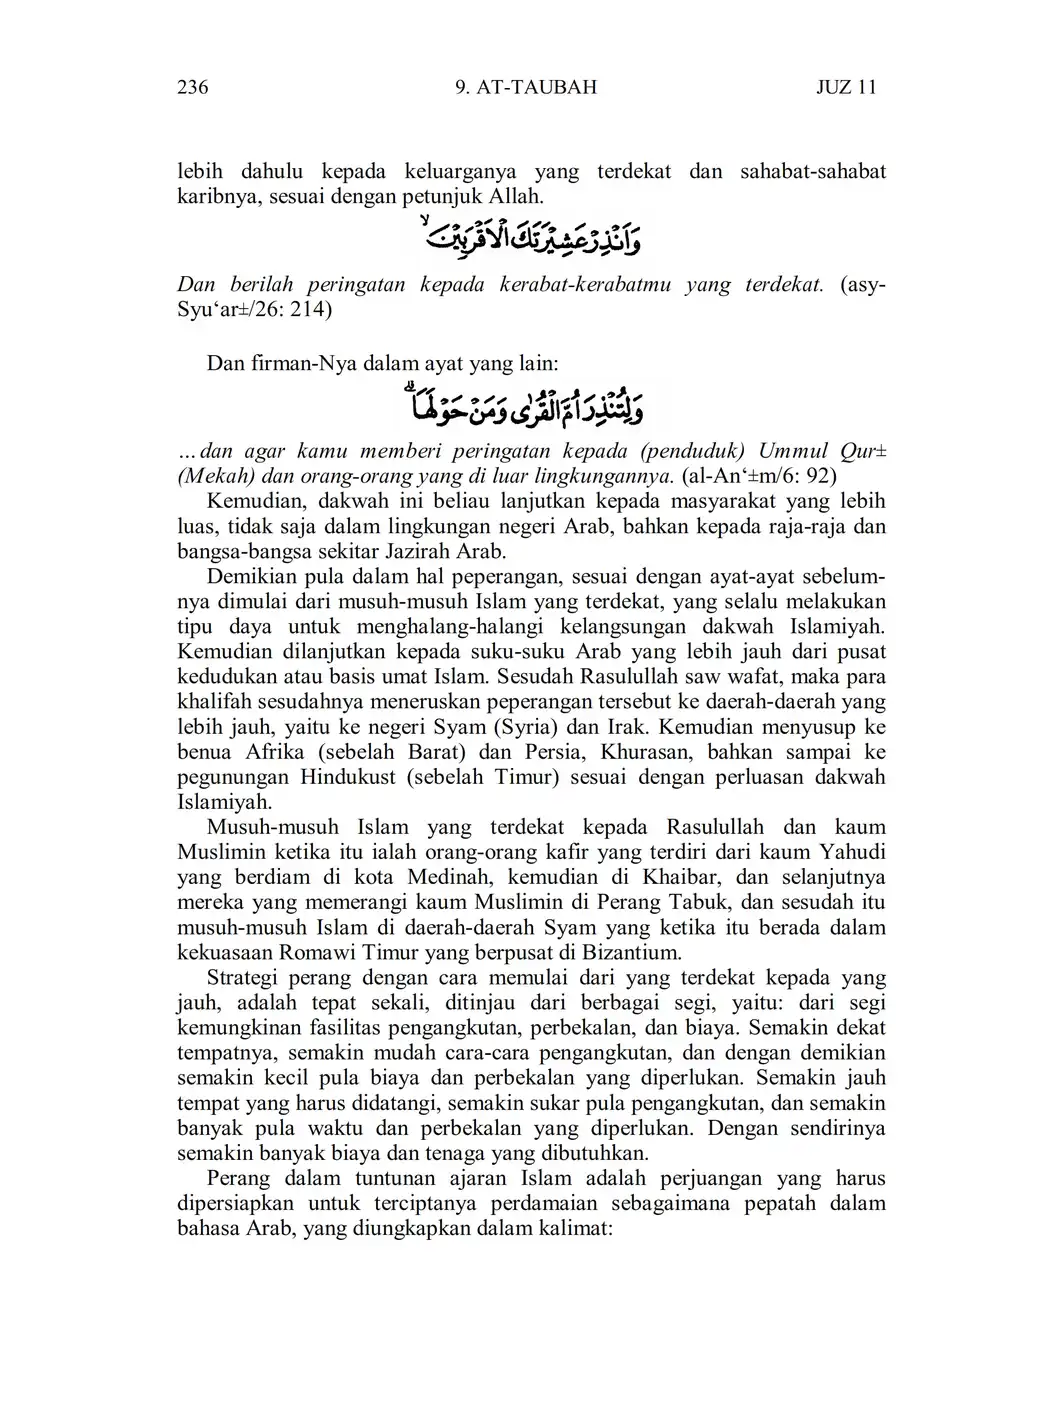 236 9. AT-TAUBAH JUZ 11
lebih dahulu kepada keluarganya yang terdekat dan sahabat-sahabat
karibnya, sesuai dengan petunjuk Allah.
وَاَنْذِرْ عَشِيْرَتَكَ الْاَقْرَبِيْنَ ۙ
Dan berilah peringatan kepada kerabat-kerabatmu yang terdekat. (asy-
Syu‘ar±/26: 214)
Dan firman-Nya dalam ayat yang lain:
وَلِتُنْذِرَ اُمَّ الْقُرٰى وَمَنْ حَوْلَهَاۗ
…dan agar kamu memberi peringatan kepada (penduduk) Ummul Qur±
(Mekah) dan orang-orang yang di luar lingkungannya. (al-An‘±m/6: 92)
Kemudian, dakwah ini beliau lanjutkan kepada masyarakat yang lebih
luas, tidak saja dalam lingkungan negeri Arab, bahkan kepada raja-raja dan
bangsa-bangsa sekitar Jazirah Arab.
Demikian pula dalam hal peperangan, sesuai dengan ayat-ayat sebelum-
nya dimulai dari musuh-musuh Islam yang terdekat, yang selalu melakukan
tipu daya untuk menghalang-halangi kelangsungan dakwah Islamiyah.
Kemudian dilanjutkan kepada suku-suku Arab yang lebih jauh dari pusat
kedudukan atau basis umat Islam. Sesudah Rasulullah saw wafat, maka para
khalifah sesudahnya meneruskan peperangan tersebut ke daerah-daerah yang
lebih jauh, yaitu ke negeri Syam (Syria) dan Irak. Kemudian menyusup ke
benua Afrika (sebelah Barat) dan Persia, Khurasan, bahkan sampai ke
pegunungan Hindukust (sebelah Timur) sesuai dengan perluasan dakwah
Islamiyah.
Musuh-musuh Islam yang terdekat kepada Rasulullah dan kaum
Muslimin ketika itu ialah orang-orang kafir yang terdiri dari kaum Yahudi
yang berdiam di kota Medinah, kemudian di Khaibar, dan selanjutnya
mereka yang memerangi kaum Muslimin di Perang Tabuk, dan sesudah itu
musuh-musuh Islam di daerah-daerah Syam yang ketika itu berada dalam
kekuasaan Romawi Timur yang berpusat di Bizantium.
Strategi perang dengan cara memulai dari yang terdekat kepada yang
jauh, adalah tepat sekali, ditinjau dari berbagai segi, yaitu: dari segi
kemungkinan fasilitas pengangkutan, perbekalan, dan biaya. Semakin dekat
tempatnya, semakin mudah cara-cara pengangkutan, dan dengan demikian
semakin kecil pula biaya dan perbekalan yang diperlukan. Semakin jauh
tempat yang harus didatangi, semakin sukar pula pengangkutan, dan semakin
banyak pula waktu dan perbekalan yang diperlukan. Dengan sendirinya
semakin banyak biaya dan tenaga yang dibutuhkan.
Perang dalam tuntunan ajaran Islam adalah perjuangan yang harus
dipersiapkan untuk terciptanya perdamaian sebagaimana pepatah dalam
bahasa Arab, yang diungkapkan dalam kalimat: